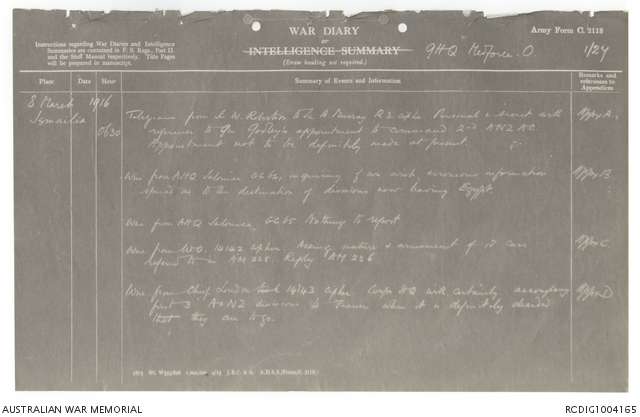 WAR DIARY
or
INTELLIGENCE SUMMARY
(Erase heading not required).
Army Form C. 2118
Instructions regarding War Diaries and Intelligence
Summaries are contained in F. S. Regs., Part II.
and the Staff Manual respectively. Title Pages
will be prepared in manuscript.
GHQ Medforce. O 1/24
Place Date Hour Summary of Events and Information Remarks and references to Appendices
8 March 1916
Ismailia
0630
Telegram from Sir W. Robertson to Sir A. Murray R2 cipher Personal & secret with
reference to Gen Godley's appointment to command 2nd ANZAC
Appointment not to be definitely made at present.
Appx A.
Wire from AHQ Salonica GC 62, inquiring if we wish erroneous information
spread as to the destination of divisions now leaving Egypt.
Appx B
Wire from AHQ Salonica, GC 65 Nothing to report
Wire from W.O. 14142 cipher. Asking nature & armament of cars
referred to in AM 225. Reply AM 236
Appx C
Wire from Chief London 14143 cipher Corps HQ will certainly accompany
first 3 A&NZ divisions to France when it is definitely decided
that they are to go.
Appx D
AUSTRALIAN WAR MEMORIAL
RCDIG1004165